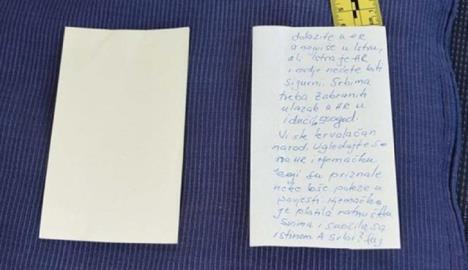 dolazite u HR
a najviše u Istru,
ali Istra je HR
i ovdje nećete biti
sigurni. Srbima
treba zabraniti
ulazak u HR u
idućih
Vi ste krvoločan
narod. Ugledajte se
na HR i njemačku
koji su priznale
neke loše poteze u
povjesti. Njemačka
je platila ratnu štetu
svima i suočila sa
istinom. A Srbi?